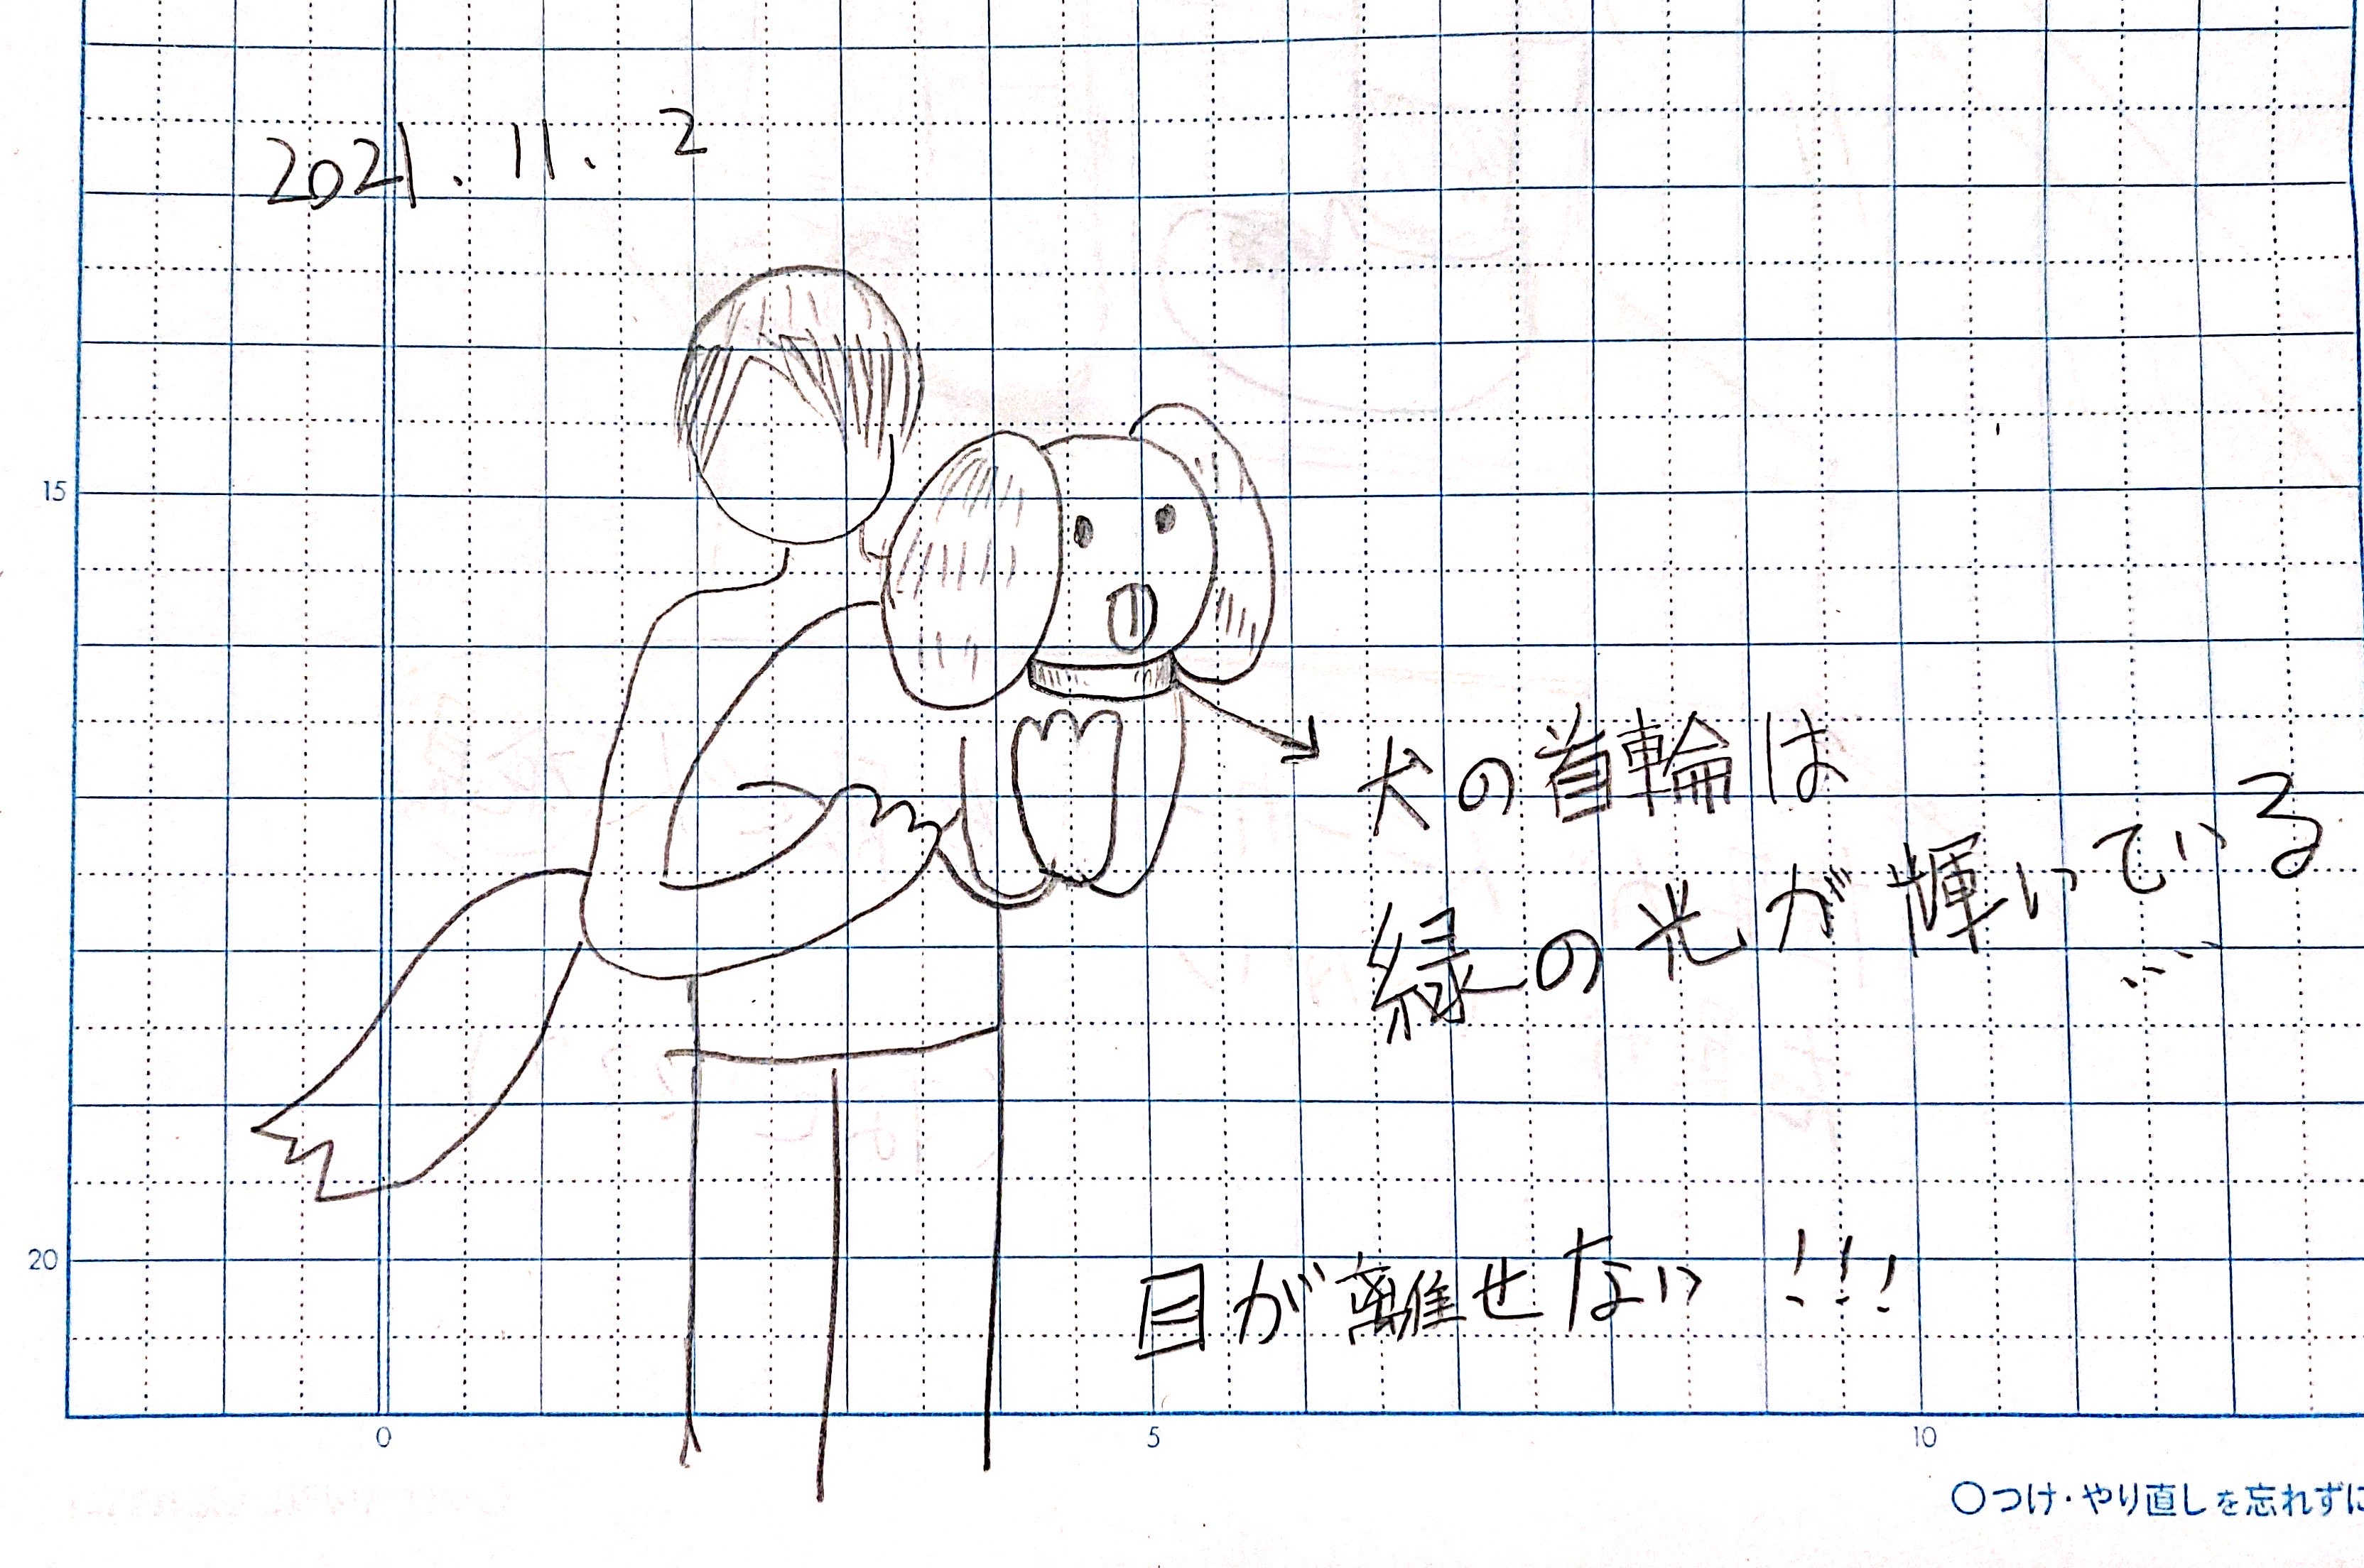 2021.11.2
15
犬の首輪は
緑の光が輝いている
目が離せない!!!
20
0 5 10
○つけ・やり直しを忘れずに